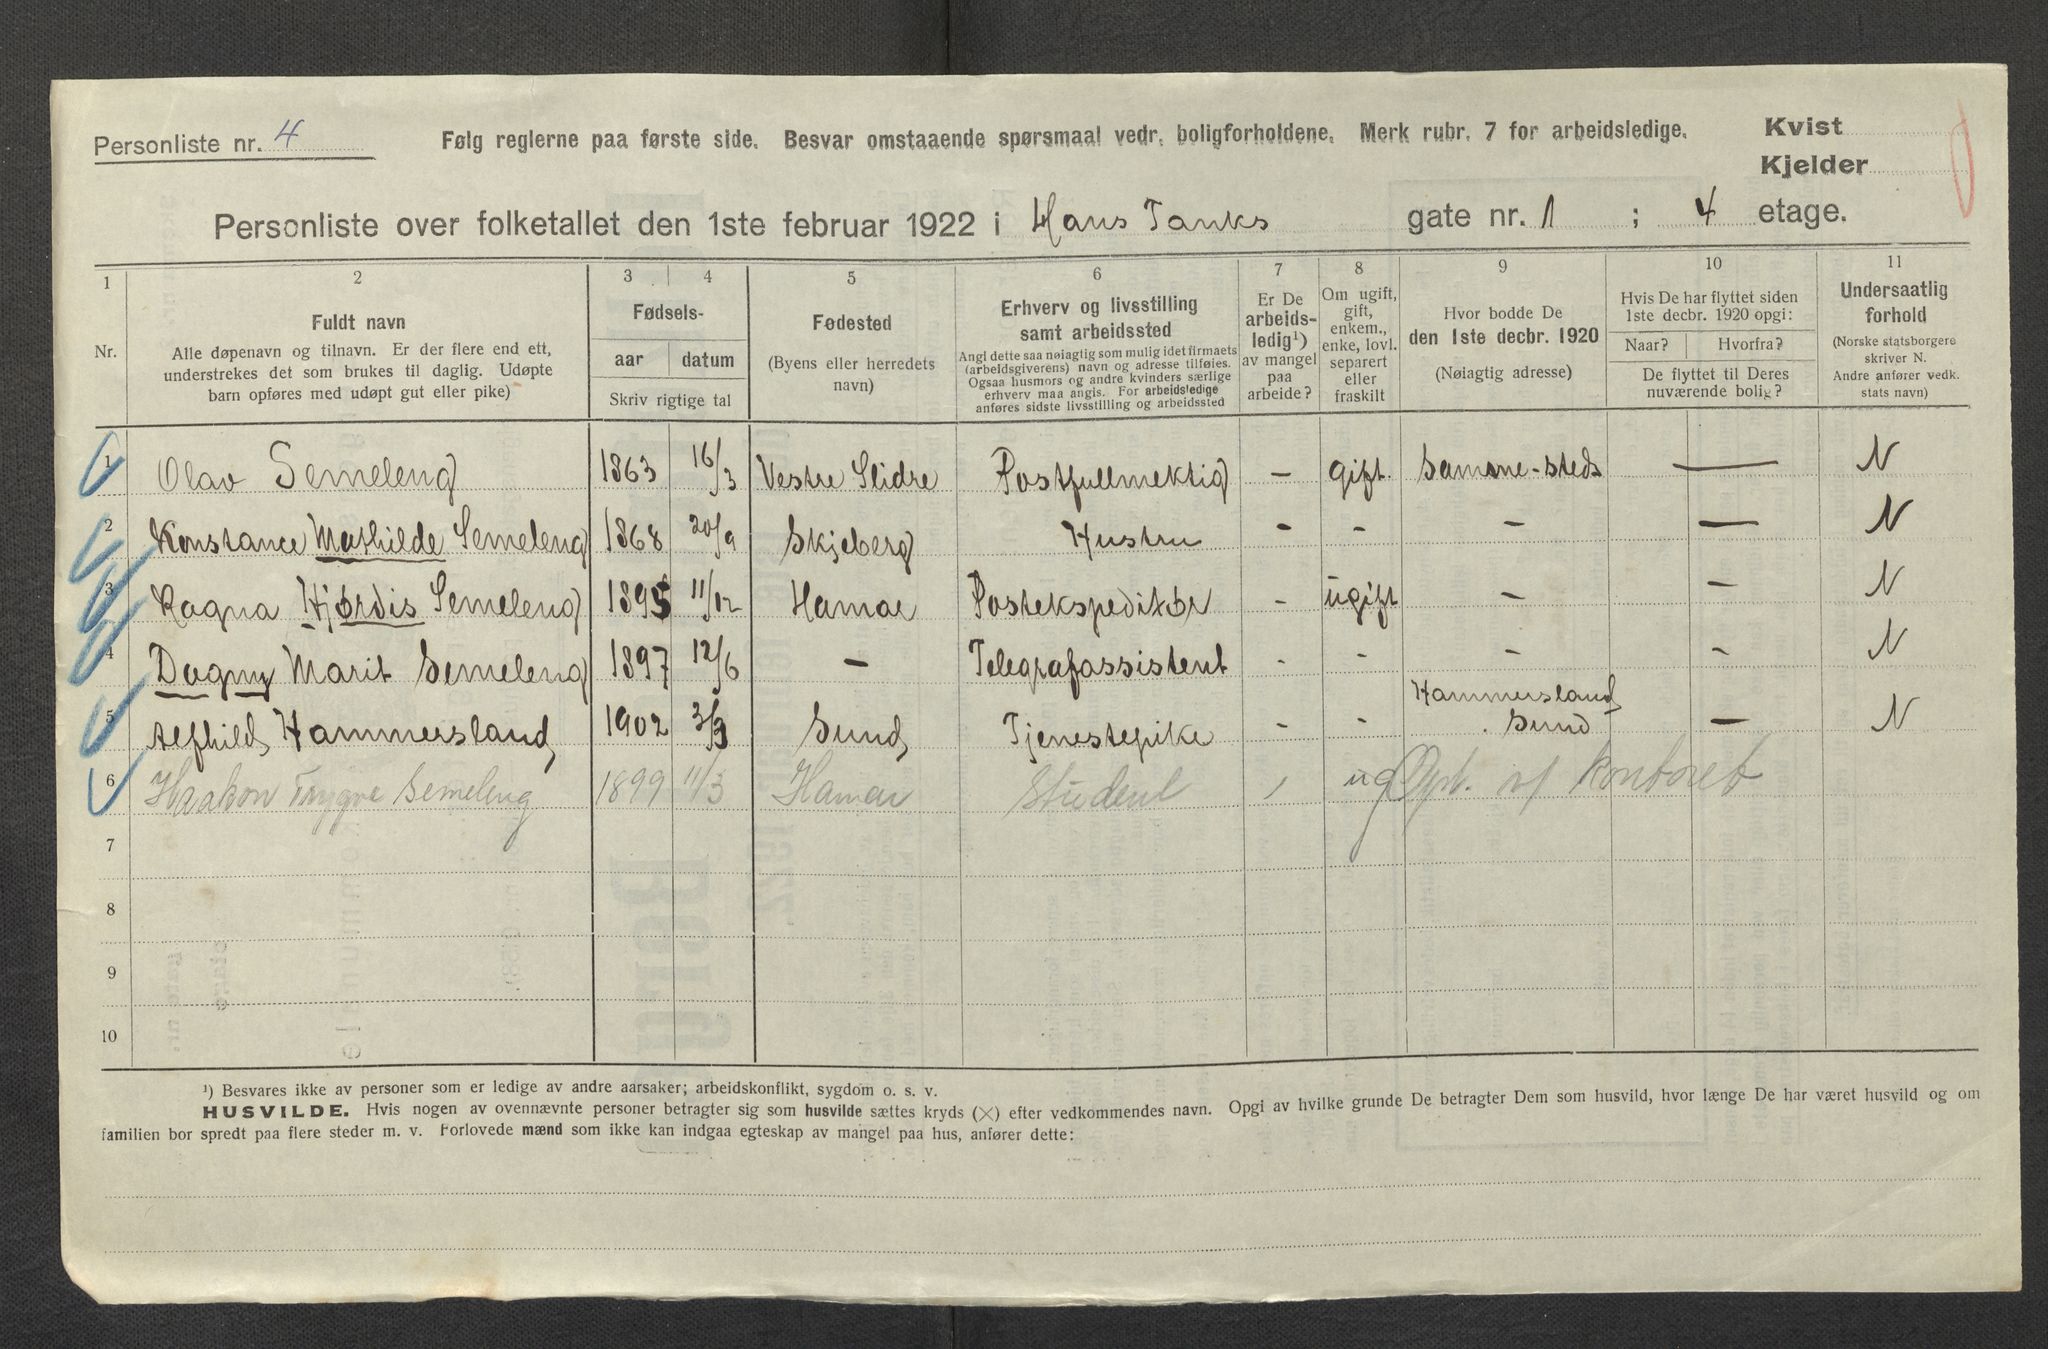 Personliste nr. 4
Følg reglerne paa første side. Besvar omstaaende spørsmaal vedr. boligforholdene. Merk rubr. 7 for arbeidsledige.
Kvist
Kjelder
Personliste over folketallet den 1ste februar 1922 i Hans Tanks gate nr. 1 ; 4 etage.
1 2 3 4 5 6 7 8 9 10 11
Nr.
Fuldt navn
Alle døpenavn og tilnavn. Er der flere end ett,
understrekes det som brukes til daglig. Udøpte
barn opføres med udøpt gut eller pike)
Fødsels-
aar datum
Skriv rigtige tal
Fødested
(Byens eller herredets
navn)
Erhverv og livsstilling
samt arbeidssted
Angi dette saa nøiagtig som mulig idet firmaets
(arbeidsgiverens) navn og adresse tilføies.
Ogsaa husmors og andre kvinders særlige
erhverv maa angis. For arbeidsledige
anføres sidste livsstilling og arbeidssted
Er De
arbeids-
ledig¹)
av mangel
paa
arbeide?
Om ugift,
gift,
enkem.,
enke, lovl.
separert
eller
fraskilt
Hvor bodde De
den 1ste decbr. 1920
(Nøiagtig adresse)
Hvis De har flyttet siden
1ste decbr. 1920 opgi:
Naar? Hvorfra?
De flyttet til Deres
nuværende bolig?
Undersaatlig
forhold
(Norske statsborgere
skriver N.
Andre anfører vedk.
stats navn)
1 Olav Semeleng 1863 16/3 Vestre Slidre Postfullmektig – gift. Samme-steds — N
2 Konstance Mathilde Semeleng 1868 20/9 Skjeberg Hustru – – – — N
3 Ragna Hjørdis Semeleng 1895 11/12 Hamar Postekspeditør – ugift – – N
4 Dagny Marit Semeleng 1897 12/6 – Telegrafassistent - - - - N
5 Alfhild Hammersland 1902 3/3 Sund Tjenestepike - - Hammersland Sund — N
6 Haakon Trygve Semeleng 1899 11/3 Hamar Student / ug Opt. af kontoret
7
8
9
10
¹) Besvares ikke av personer som er ledige av andre aarsaker; arbeidskonflikt, sygdom o. s. v.
HUSVILDE. Hvis nogen av ovennævnte personer betragter sig som husvilde sættes kryds (×) efter vedkommendes navn. Opgi av hvilke grunde De betragter Dem som husvild, hvor længe De har været husvild og om
familien bor spredt paa flere steder m. v. Forlovede mænd som ikke kan indgaa egteskap av mangel paa hus, anfører dette: